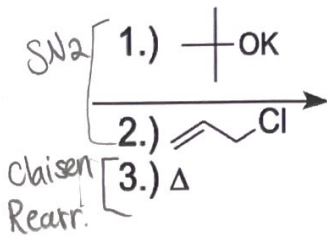 SN2
1.) OK
2.) Cl
Claisen
3.) Δ
Rearr.